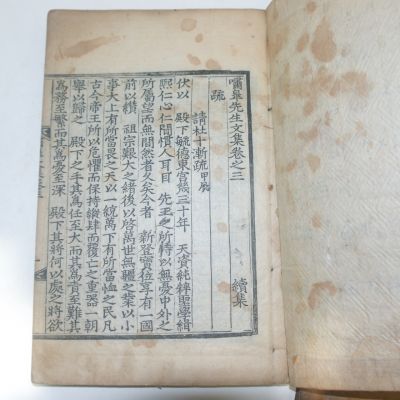 嘯皐先生文集卷之三
疏 續集
請杜十漸疏甲辰
伏以 殿下毓德東宮幾三十年 天資純粹聖學緝
熙仁心仁聞慣人耳目 先王之所恃以無憂中外之
所屬望而無間然者久矣今者 新登寶位享有一國
前以纘 祖宗艱大之緒後以啓萬世無疆之業以小
事大上有所當畏之天以一貌萬下有所當恤之民凡
古今帝王所以危懼而保持縱肆而覆亡之重器一朝
擧以歸之 殿下之手其爲任至大而其爲責至難其
爲務至繁而其爲憂至深 殿下其將何以處之將欲